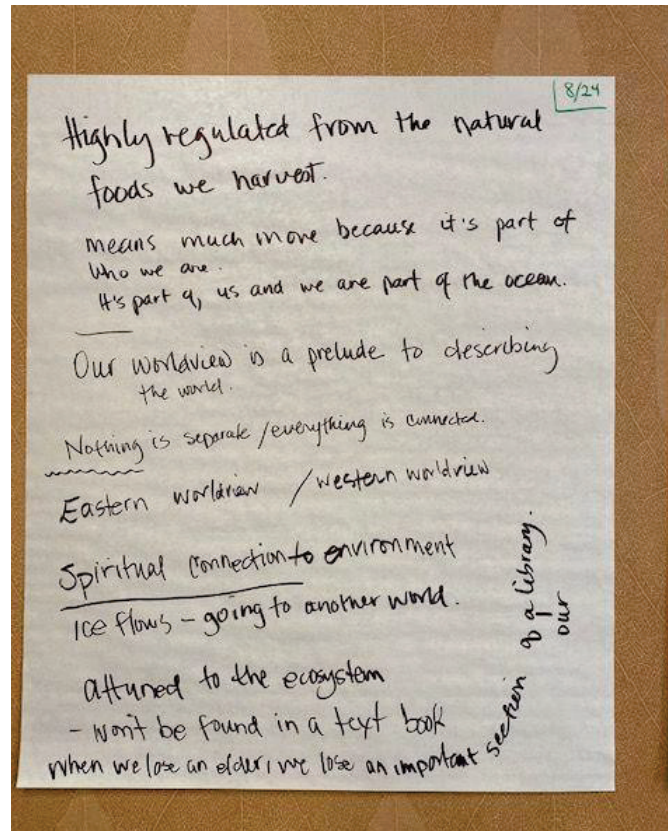 8/24
Highly regulated from the natural
foods we harvest.
means much more because it's part of
who we are.
It's part of, us and we are part of the ocean.
Our worldview is a prelude to describing
the world.
Nothing is separate / everything is connected.
Eastern worldview / western worldview
Spiritual connection to environment
Ice flows - going to another world.
attuned to the ecosystem
- won't be found in a text book
when we lose an elder, we lose an important section of a library.
our